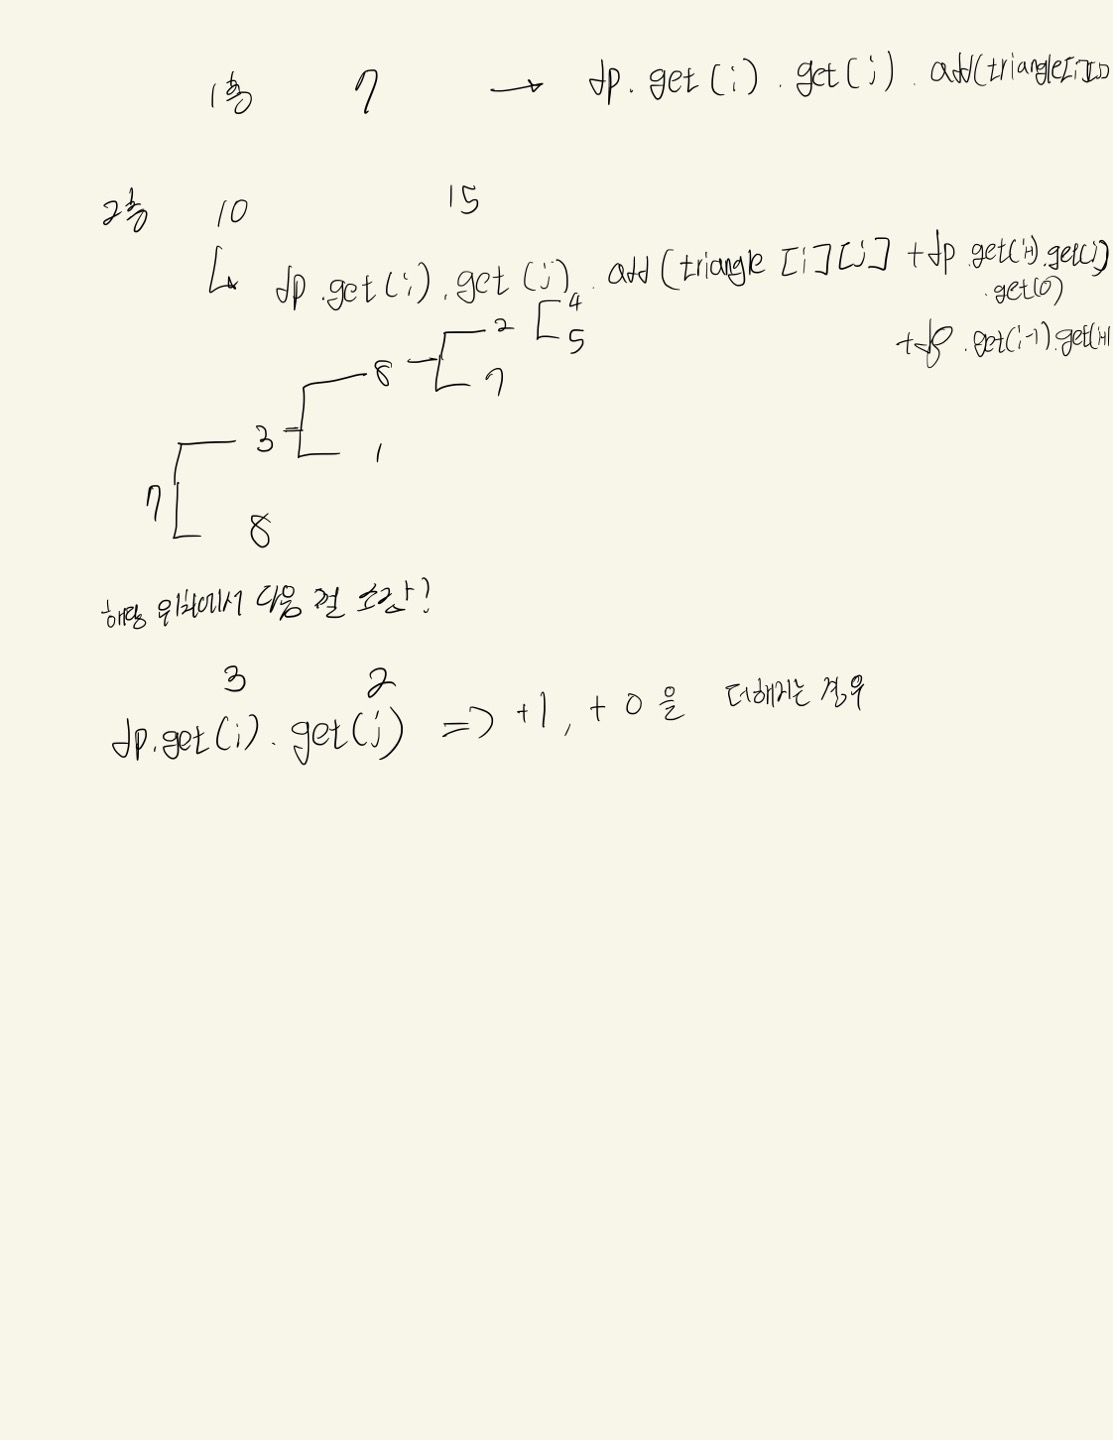 1층 7 → dp.get(i).get(j).add(triangle[i][j])
2층 10 15
↳ dp.get(i).get(j).add(triangle[i][j] + dp.get(i-1).get(j)
.get(0)
+dp.get(i-1).get(
7 3 8 2 4
5
7
1
8
해당 위치에서 다음 걸
3 2
dp.get(i).get(j) => +1, +0 을 더해지는 경우